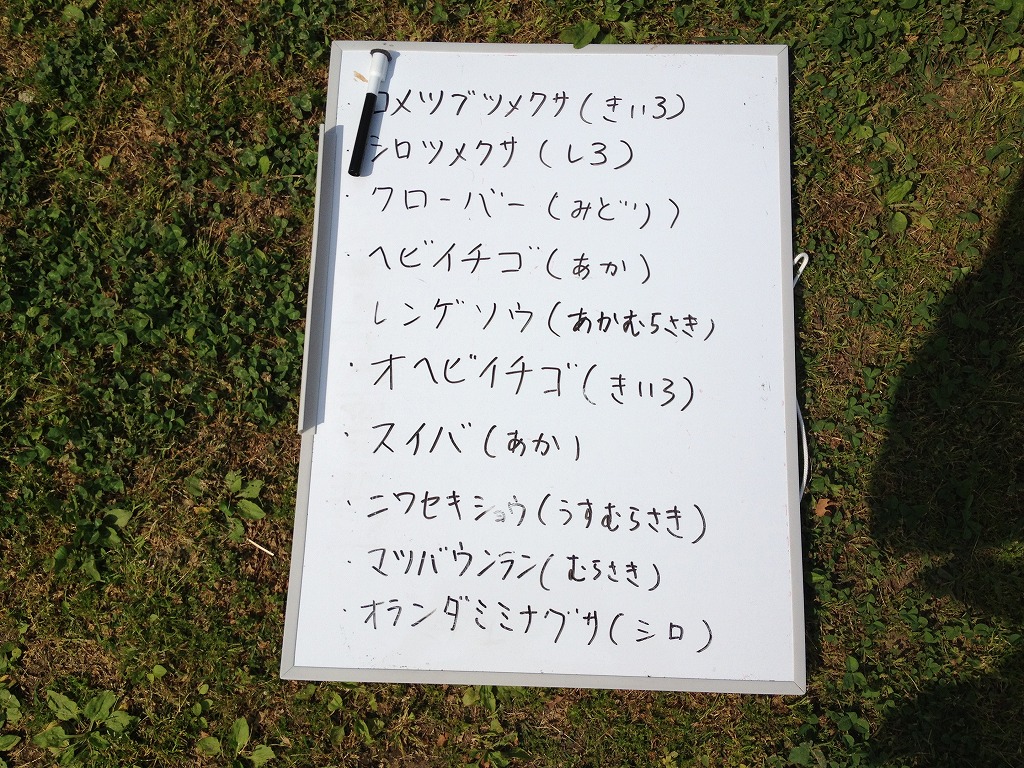 ・コメツブツメクサ(きいろ)
・シロツメクサ(しろ)
・クローバー(みどり)
・ヘビイチゴ(あか)
レンゲソウ(あかむらさき)
・オヘビイチゴ(きいろ)
・スイバ(あか)
・ニワセキショウ(うすむらさき)
・マツバウンラン(むらさき)
・オランダミミナグサ(シロ)